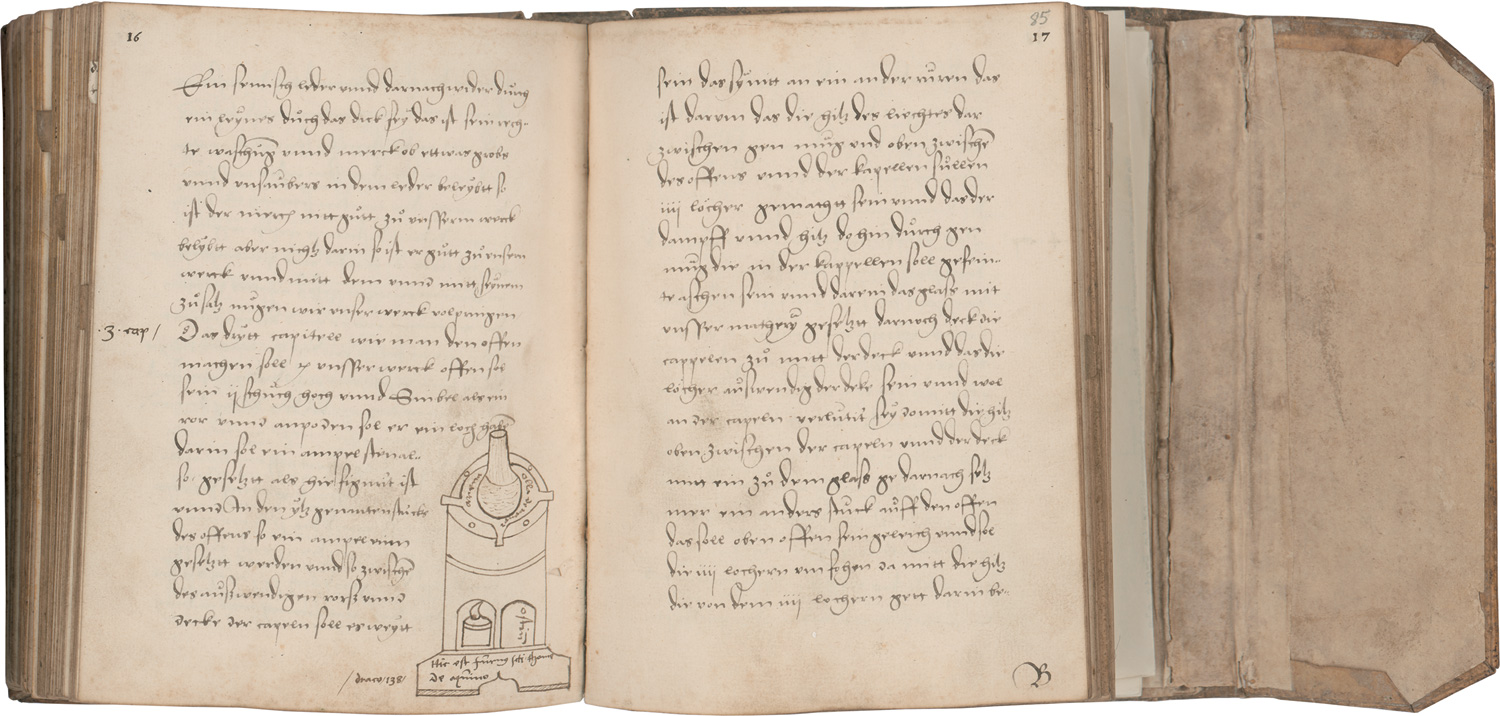 16
Ein semisch leder vnnd darnach wider durch
ein leynes duch das dick sey das ist sein rech-
te waschung vnnd merck ob ettwas grobs
vnnd vnsaubers in dem leder beleybtt so
ist der mercy nitt gutt zu vnsserm werck
belybtt aber nichtz darin so ist er gutt zu vnsem
werck vnnd mitt dem vnnd mitt seynem
zusatz mugen wir vnser werck volpringen
·3· cap /
Das drytt capitell wie man den offen
machen soll vnsser werck offen sol
sein ij schuch hoch vnnd Sinbel als ein
ror vnnd an poden sol er ein loch habn
darin sol ein ampel sten al-
so gesetztt als hie figurirt ist
vnnd In den ytz genanten stucks
des offens so ein ampel
gesetztt werden vnnd so zwischn
des auswendigen rorss vnnd
decke der capeln soll es weytt
Hic est furnus sti thome
De aquino
/ draco 138 /
85
17
sein das sy nitt an ein ander ruren das
ist darum das die hitz des liechtes dar
zwischen gen mug vnd oben zwischn
des offens vnnd der kapellen sullen
iiij locher gemachtt sein vnnd das der
dampff vnnd hitz do hin durch gen
mug die in der kappellen soll gesein-
te aschen sein vnnd darein das glass mit
vnsser mathery gesetztt darnoch deck die
cappelen zu mitt der deck vnnd das die
locher auswendig der deke sein vnnd wol
an der capeln verlutit sey domitt die hitz
oben zwischen der capeln vnnd der deck
nitt ein zu dem glass ge darnach setz
mer ein anders stuck auff den offen
das soll oben offen sein geleich vnnd sol
die iiij lochern vmfohen da mitt die hitz
die von dem iiij lochern gett darin be-
B